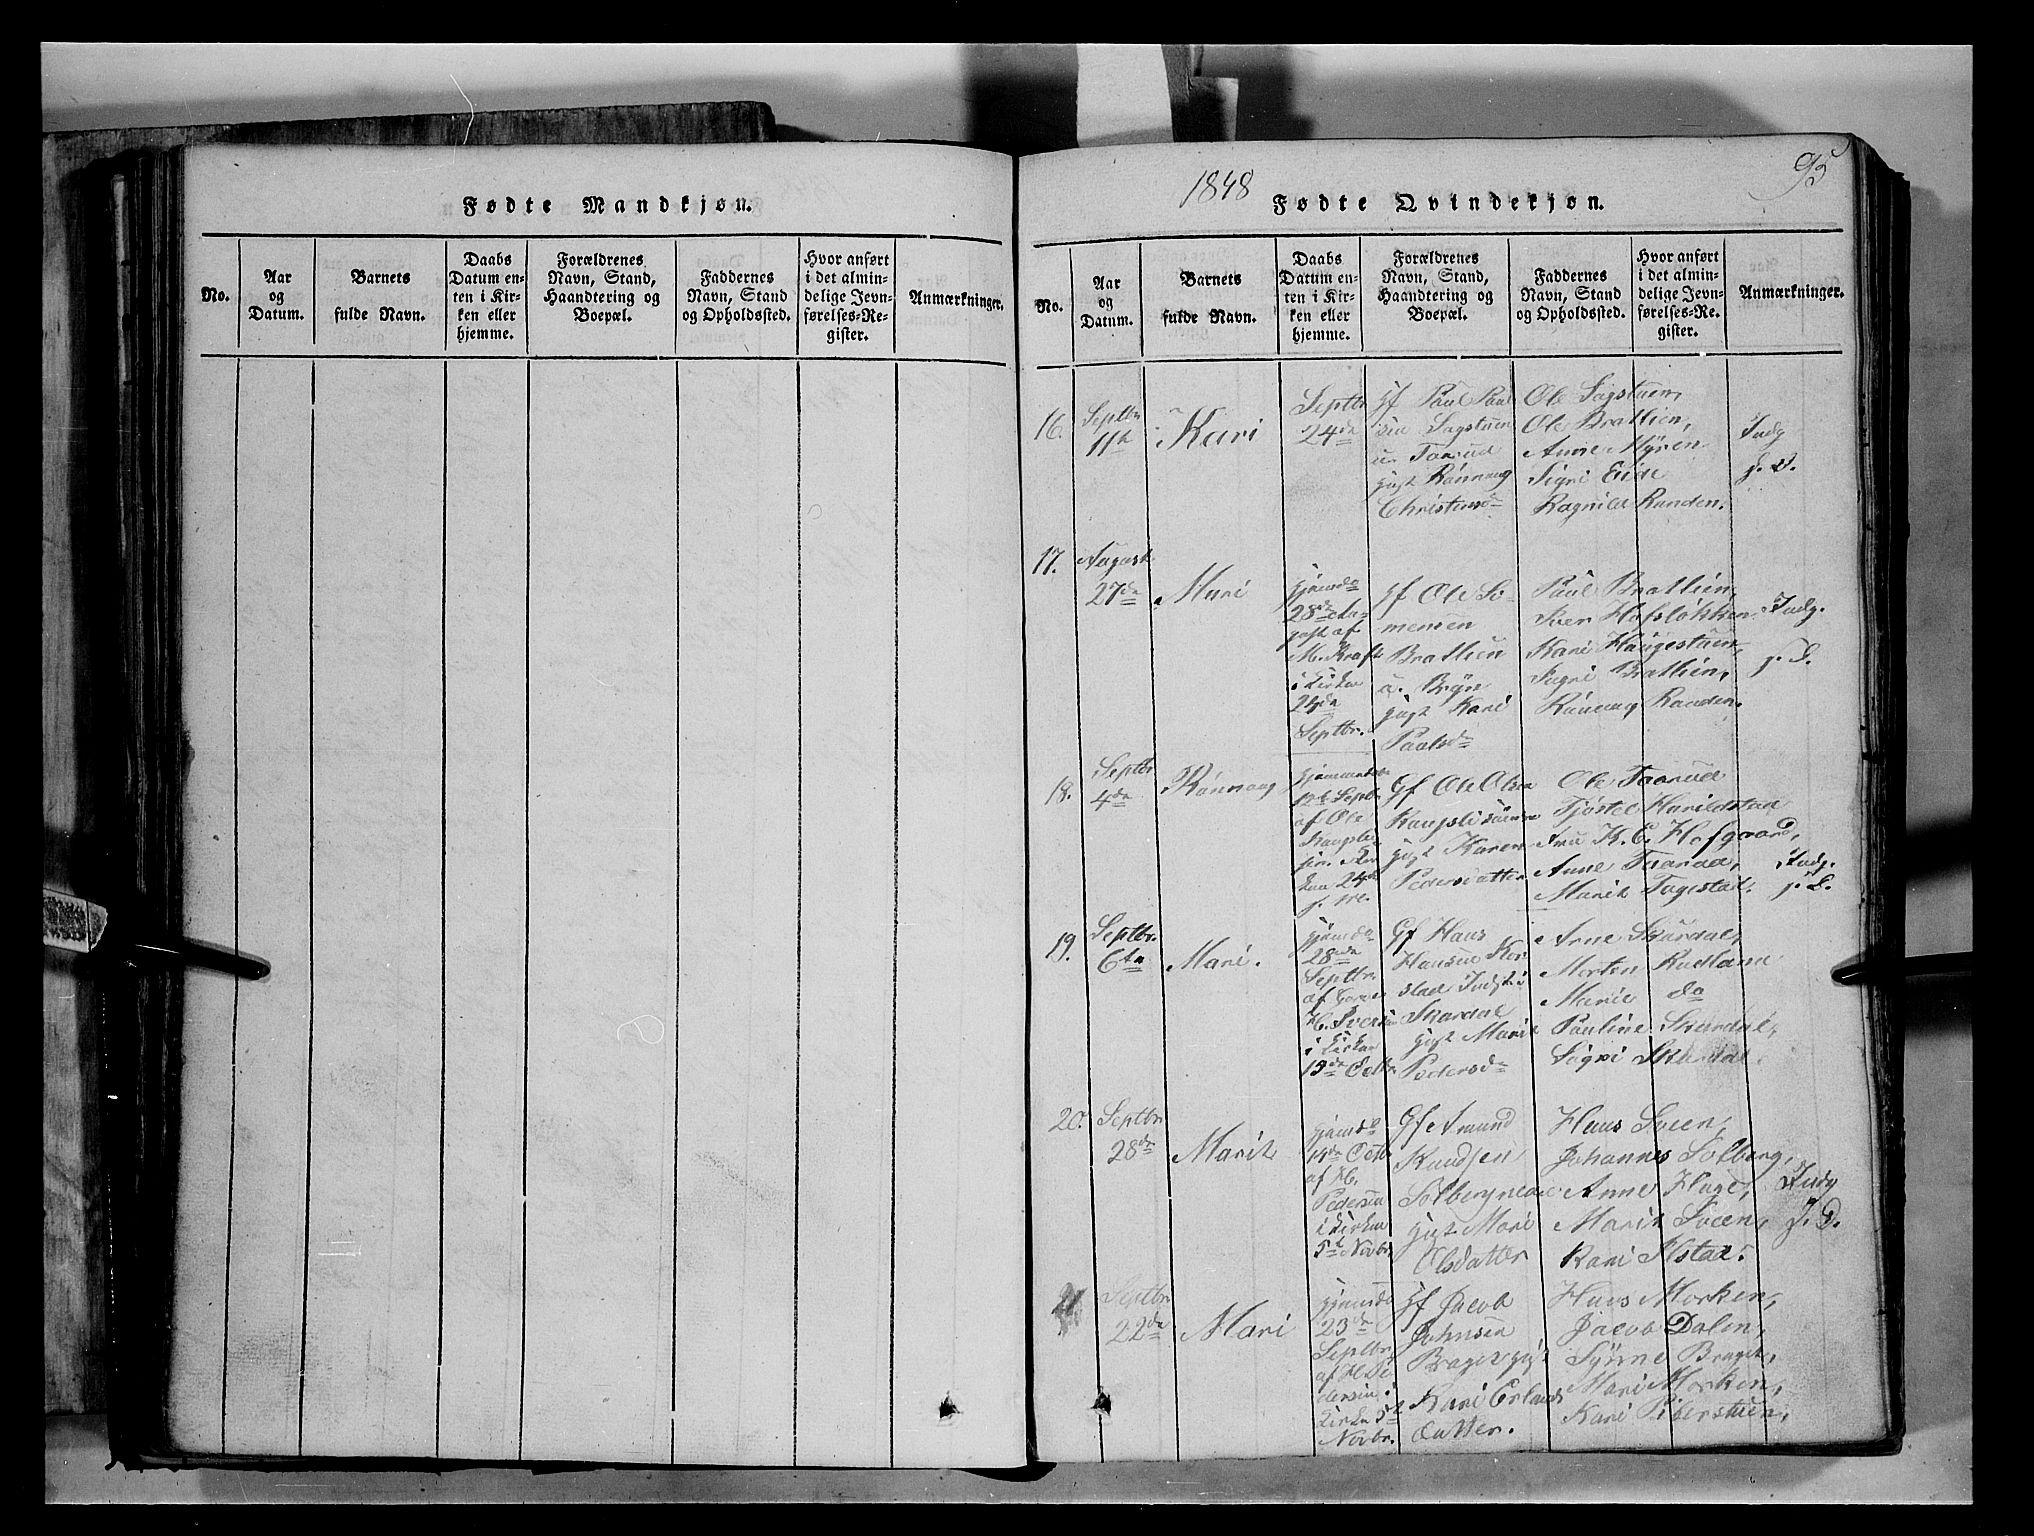 95
Fødte Mandkjøn.
No.
Aar
og
Datum.
Barnets
fulde Navn.
Daabs
Datum en-
ten i Kir-
ken eller
hjemme.
Forældrenes
Navn, Stand,
Haandtering og
Boepæl.
Faddernes
Navn, Stand
og Opholdssted.
Hvor anført
i det almin-
delige Jevn-
førelses-Re-
gister.
Anmærkninger.
1848
Fødte Qvindekjøn.
No.
Aar
og
Datum.
Barnets
fulde Navn.
Daabs
Datum en-
ten i Kir-
ken eller
hjemme.
Forældrenes
Navn, Stand,
Haandtering og
Boepæl.
Faddernes
Navn, Stand
og Opholdssted.
Hvor anført
i det almin-
delige Jevn-
førelses-Re-
gister.
Anmærkninger.
16.
Septbr
11te
Kari
Septbr
24de
Gf Paul Paul
sen Sagstuen
u. Taarud
gift Rønnaug
Christensd
Ole Sagstuen,
Ole Bratlien,
Anne Myren
Sigri Eide
Ragnild Randen.
Indg
f. D.
17.
August
27de
Mari
hjemdø
28de Au-
gust af
M. Kraft
i Kirken
24de
Septbr.
Gf Ole Si-
mensen
Bratlien
u. Bryn
gift Kari
Paulsd
Paul Bratlien,
Iver Hofsløkken
Kari Haugestuen,
Sigri Bratlien,
Rønnaug Randen.
Indg.
f. D.
18.
Septbr
4de
Rønnaug
12te Septbr
af Ole
ken 24de
Gf Ole Olsen
gift Karen
Pedersdatter
Ole Taarud
Tjøstel Harildstad
Fru K. C. Hofgaard,
Anne Taarud,
Marit Fagestad.
Indg.
f. D.
19.
Septbr.
6te
Mari.
hjemdø
28de
Septbr.
af
i Kirken
15de Octbr.
Gf Hans
Hansen Kor
stad Inds. i
Skardal
gift Marit
Pedersd
Arne Skardal,
Morten Rudland
Marie do
Pauline Skardal,
Sigri Skardal.
20.
Septbr
28de
Marit
hjemdø
14de Octbr
af H.
Pedersen
i Kirken
5te Novbr.
Gf Amund
Knudsen
Solbergs
gift Mari
Olsdatter
Hans Sveen,
Johannes Solberg,
Anne Hage,
Marit Sveen,
Kari Ilstad.
Indg
f. D.
21
Septbr
22de
Mari
hjemdø
23de
Septbr.
af H. Pe
dersen i
Kirken 5te
Novbr.
Gf Jacob
Johnsen
Braget gift
Kari Erlands
datter.
Hans Morken,
Jacob Dalen,
Synne Braget,
Mari Morken,
Kari Piberstuen,